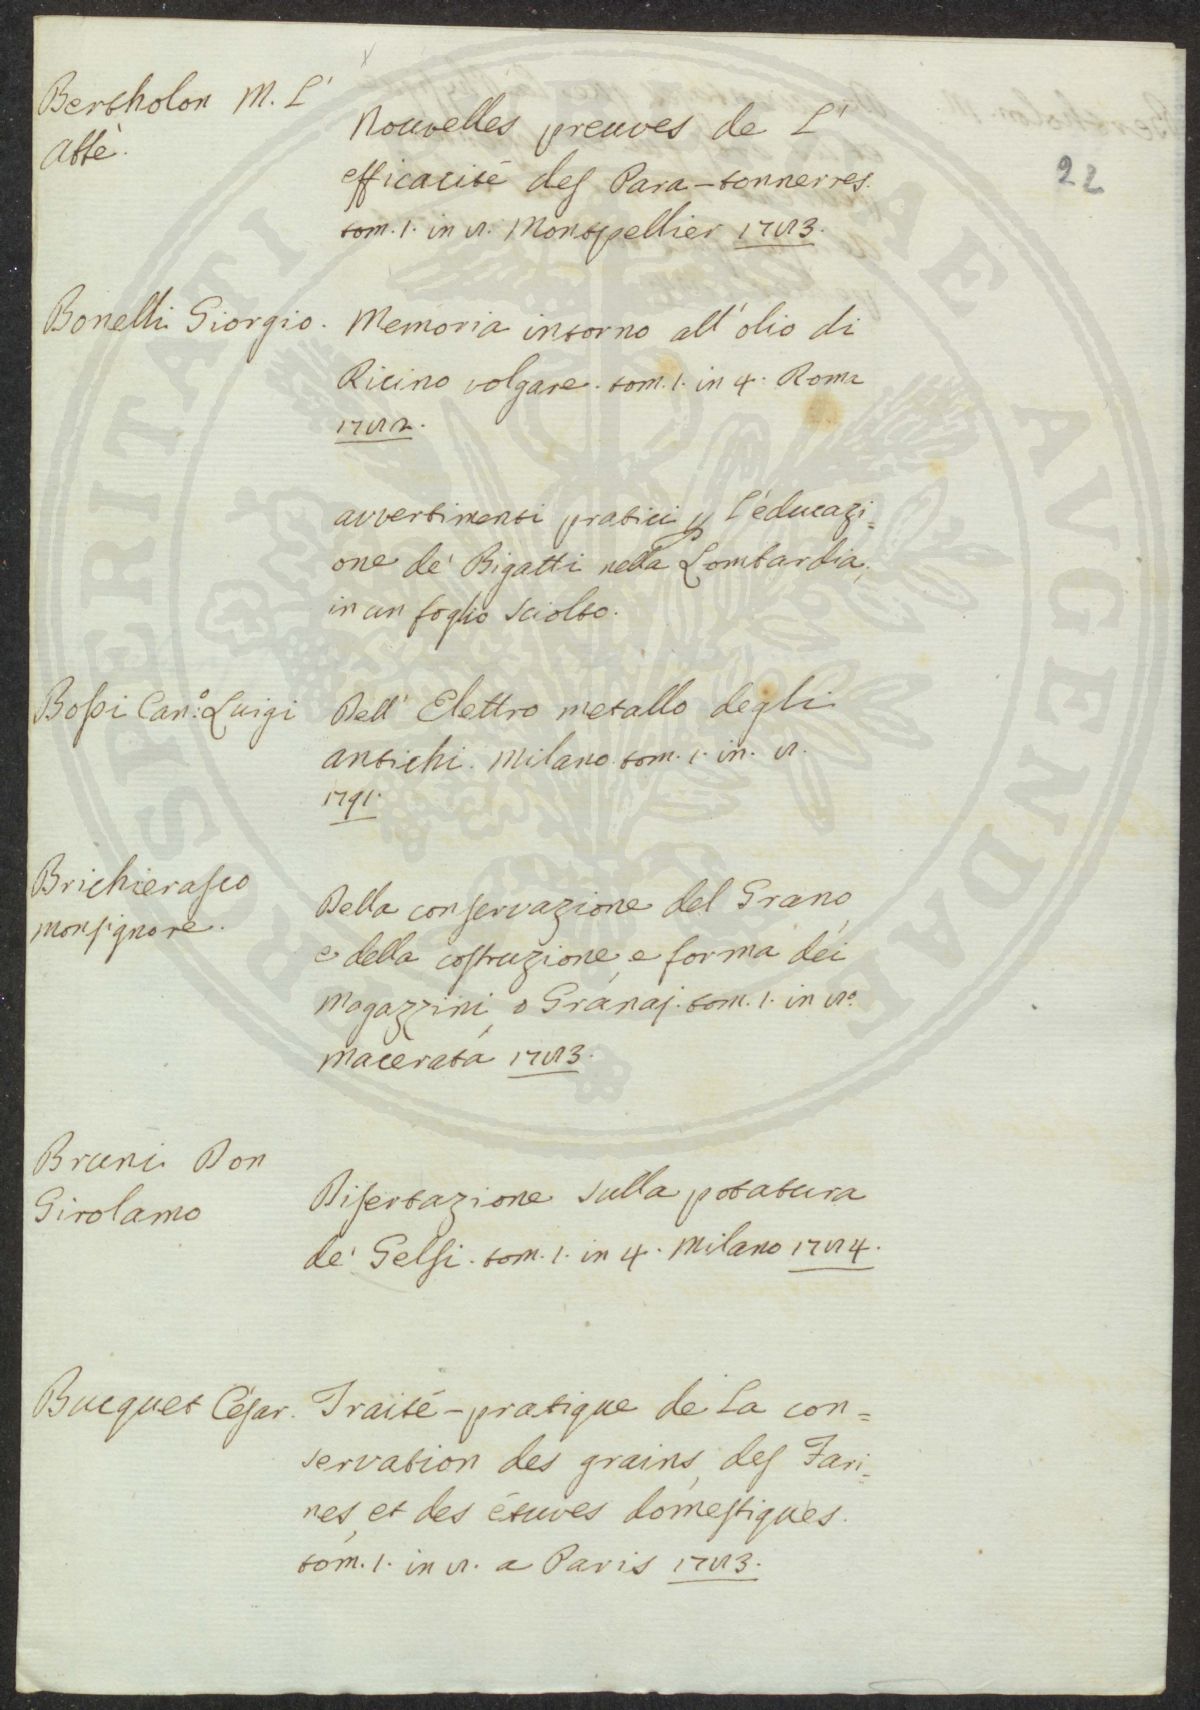 22
Bertholon M. L'
Abbè.
Nouvelles preuves de L'
efficacité des Para-tonnerres.
tom. 1. in 8. Montpellier 1783.
Bonelli Giorgio.
Memoria intorno all'olio di
Ricino volgare. tom. 1. in 4. Roma
1782.
avvertimenti pratici p l'educazi=
one de' Bigatti nella Lombardia,
in un foglio sciolto.
Bossi Can:º Luigi
Dell' Elettro metallo degli
antichi. Milano. tom. 1. in. 8.
1791.
Brichierasco
monsignore.
Della conservazione del Grano,
e della costruzione, e forma dei
magazzini, o Granaj. tom. 1. in 8º
macerata 1783.
Bruni Don
Girolamo
Disertazione sulla potatura
de' Gelsi. tom. 1. in 4. Milano 1784.
Bucquet César.
Traité-pratique de La con=
servation des grains, des Fari=
nes, et des étuves domestiques.
tom. 1. in 8. a Paris 1783.
PROSPERITATI PATRIAE AVGENDAE